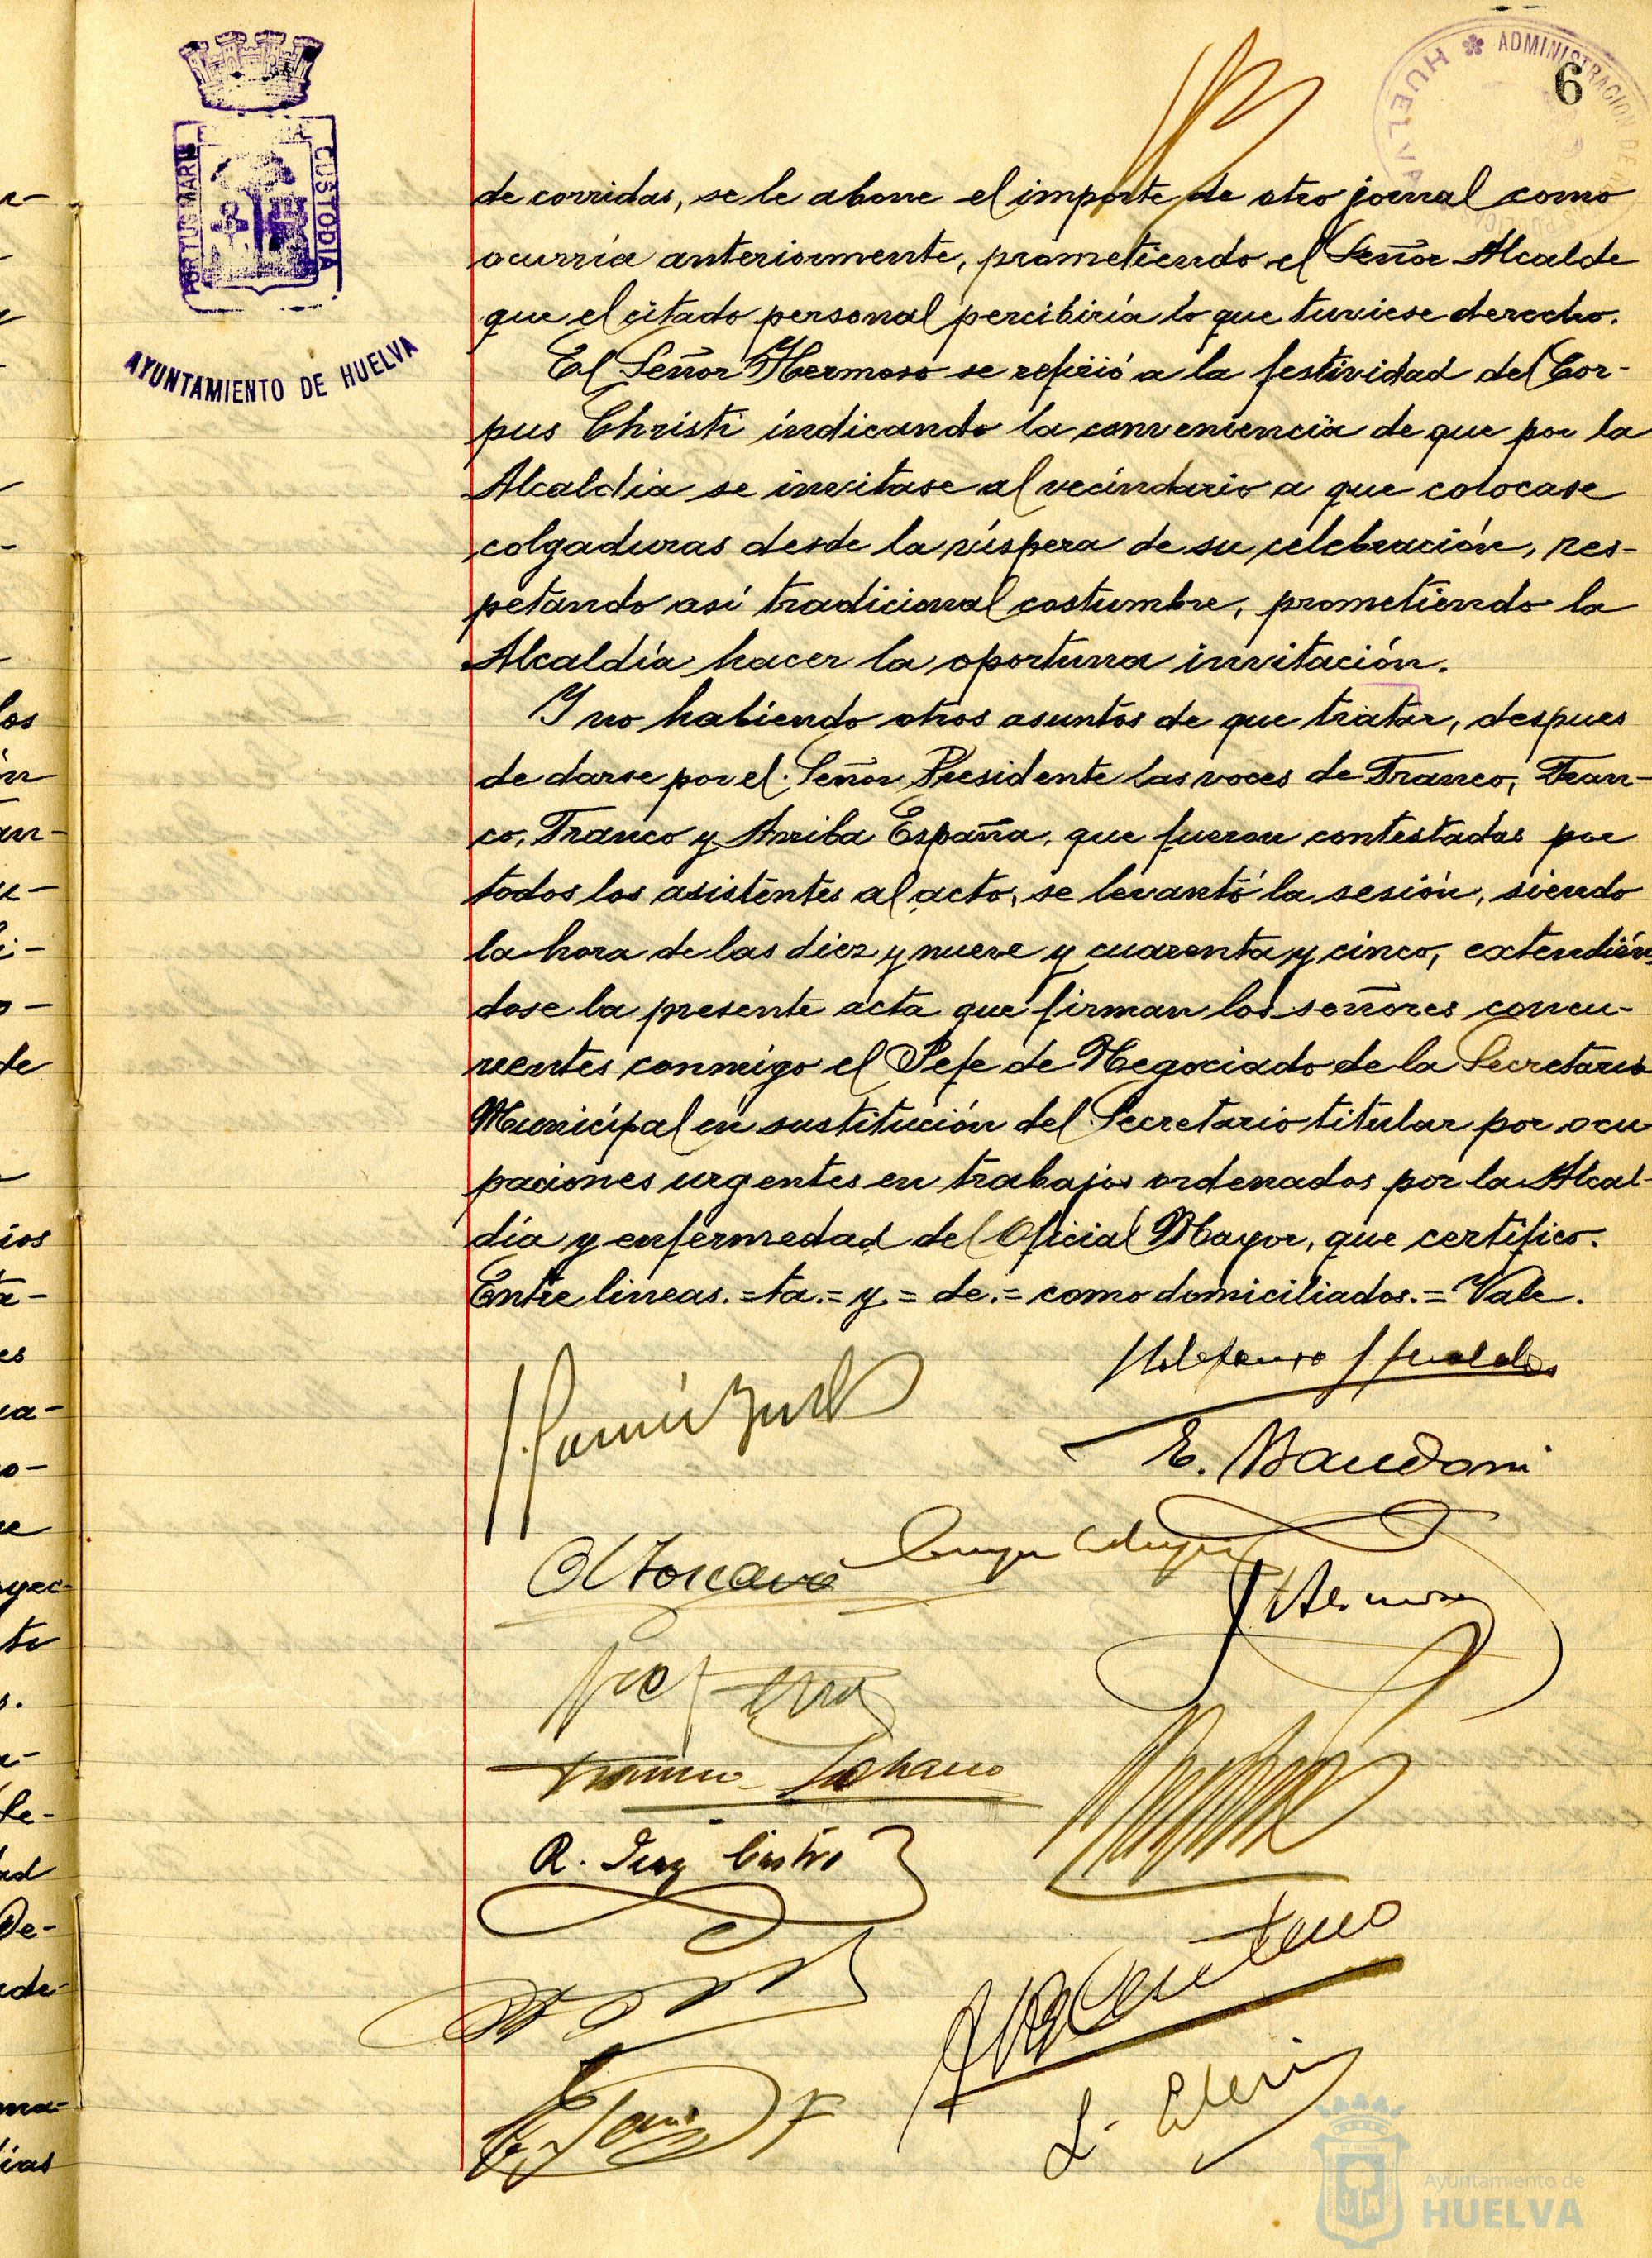 PORTUS MARIS
CUSTODIA
AYUNTAMIENTO DE HUELVA
HUELVA * ADMINISTRACION DE
6
de corridas, se le abone el importe de otro jornal como
ocurría anteriormente, prometiendo el Señor Alcalde
que el citado personal percibiría lo que tuviese derecho.
El Señor Hermoso se refirió a la festividad del Cor-
pus Christi indicando la conveniencia de que por la
Alcaldía se invitase al vecindario a que colocase
colgaduras desde la víspera de su celebración, res-
petando así tradicional costumbre, prometiendo la
Alcaldía hacer la oportuna invitación.
Y no habiendo otros asuntos de que tratar, despues
de darse por el Señor Presidente las voces de Franco, Fran-
co, Franco y Arriba España, que fueron contestadas por
todos los asistentes al acto, se levantó la sesión, siendo
la hora de las diez y nueve y cuarenta y cinco, extendién-
dose la presente acta que firman los señores concu-
rrentes conmigo el Jefe de Negociado de la Secretaria
Municipal en sustitución del Secretario titular por ocu
paciones urgentes en trabajos ordenados por la Alcal-
día y enfermedad del Oficial Mayor, que certifico.
Entre lineas.=ta.=y.=de.=como domiciliados.=Vale.
E. Mandoni
Toscano
J Hermoso
Lozano
R. Diaz Castro
Centeno
L.
Ayuntamiento de
HUELVA